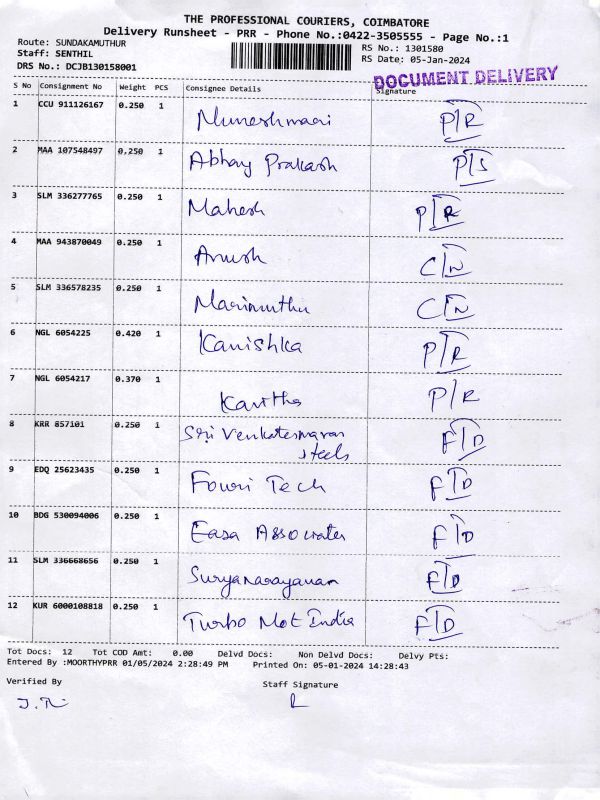 THE PROFESSIONAL COURIERS, COIMBATORE
Delivery Runsheet - PRR - Phone No.:0422-3505555 - Page No.:1
Route: SUNDAKAMUTHUR RS No.: 1301580
Staff: SENTHIL RS Date: 05-Jan-2024
DRS No.: DCJB130158001
DOCUMENT DELIVERY
S No Consignment No Weight PCS Consignee Details Signature
1 CCU 911126167 0.250 1 Muneshwaari P/R
2 MAA 107548497 0.250 1 Abhay Prakash P/S
3 SLM 336277765 0.250 1 Mahesh P/R
4 MAA 943870049 0.250 1 Anush C/N
5 SLM 336578235 0.250 1 Marimuthu C/N
6 NGL 6054225 0.420 1 Kanishka P/R
7 NGL 6054217 0.370 1 P/R
8 KRR 857101 0.250 1 Sri Venkateswaran F/D
steels
9 EDQ 25623435 0.250 1 Fouri Tech F/D
10 BDG 530094006 0.250 1 F/D
11 SLM 336668656 0.250 1 Suryanarayanan F/D
12 KUR 6000108818 0.250 1 Turbo Mot India F/D
Tot Docs: 12 Tot COD Amt: 0.00 Delvd Docs: Non Delvd Docs: Delvy Pts:
Entered By :MOORTHYPRR 01/05/2024 2:28:49 PM Printed On: 05-01-2024 14:28:43
Verified By Staff Signature